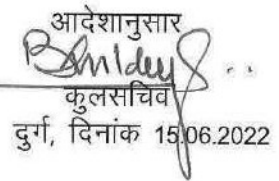 आदेशानुसार
कुलसचिव
दुर्ग, दिनांक 15.06.2022